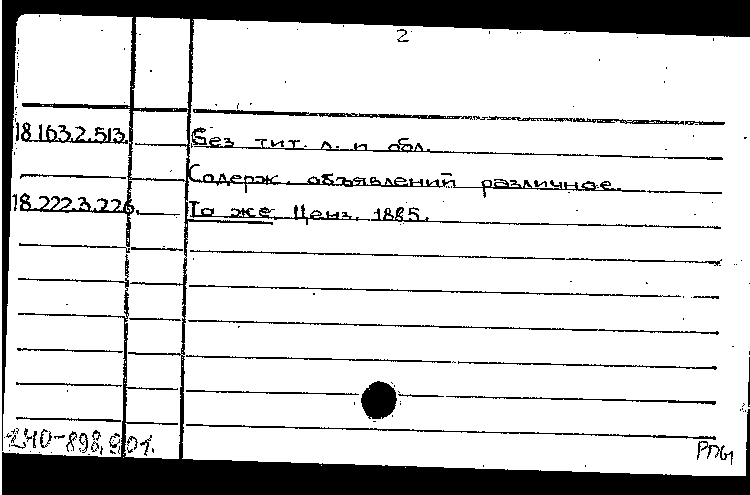 2
18.163.2.513. Без тит. л. и обл.
Содерж. объявлений различное.
18.222.3.226. То же. Ценз. 1885.